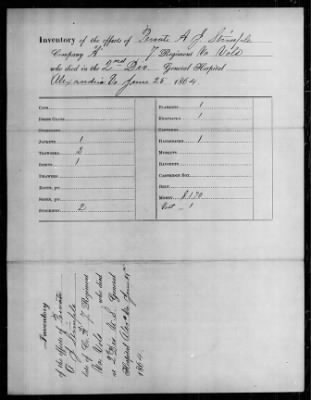 Inventory of the effects of Private A. J.
Company "A" 7 Regiment Vols
who died in the 2nd Div. General Hospital
Alexandria Va June 25 1864
Caps,
Dress Coats,
Jackets, 1
Trowsers, 2
Shirts, 1
Drawers,
Boots, pr.
Shoes, pr.
Stockings, 2
Blankets, 1
Knapsacks, 1
Haversacks, 1
Muskets,
Bayonets,
Cartridge Box
Belt,
Money $1.70
Vest 1
Inventory
of the effects of Private
A. J.
late of Co. A 7 Regiment
Vols who died
at 2 Div U.S. General
Hospital
1864